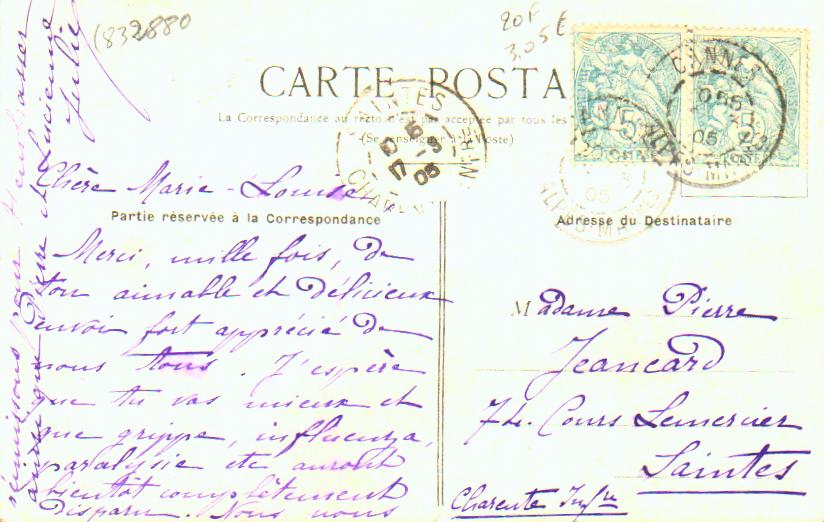 (832880
20F
3.05€
CARTE POSTA
La Correspondance au recto n'est pas acceptée par tous les
(Se renseigner à la Poste)
SAINTES
17 -3
05
CANNES
05
ALPES-MARIT
5
Chère Marie-Louise
Partie réservée à la Correspondance
Merci, mille fois, de
ton aimable et délicieux
envoi fort apprécié de
nous tous. J'espère
que tu vas mieux et
que grippe, influenza,
paralysie etc auront
bientôt complètement
disparu. Nous nous
réunissons pour t'embrasser
ainsi que Pierre et Lucienne
Julie
Adresse du Destinataire
Madame Pierre
Jeancard
74. Cours Lemercier
Saintes
Charente Infre